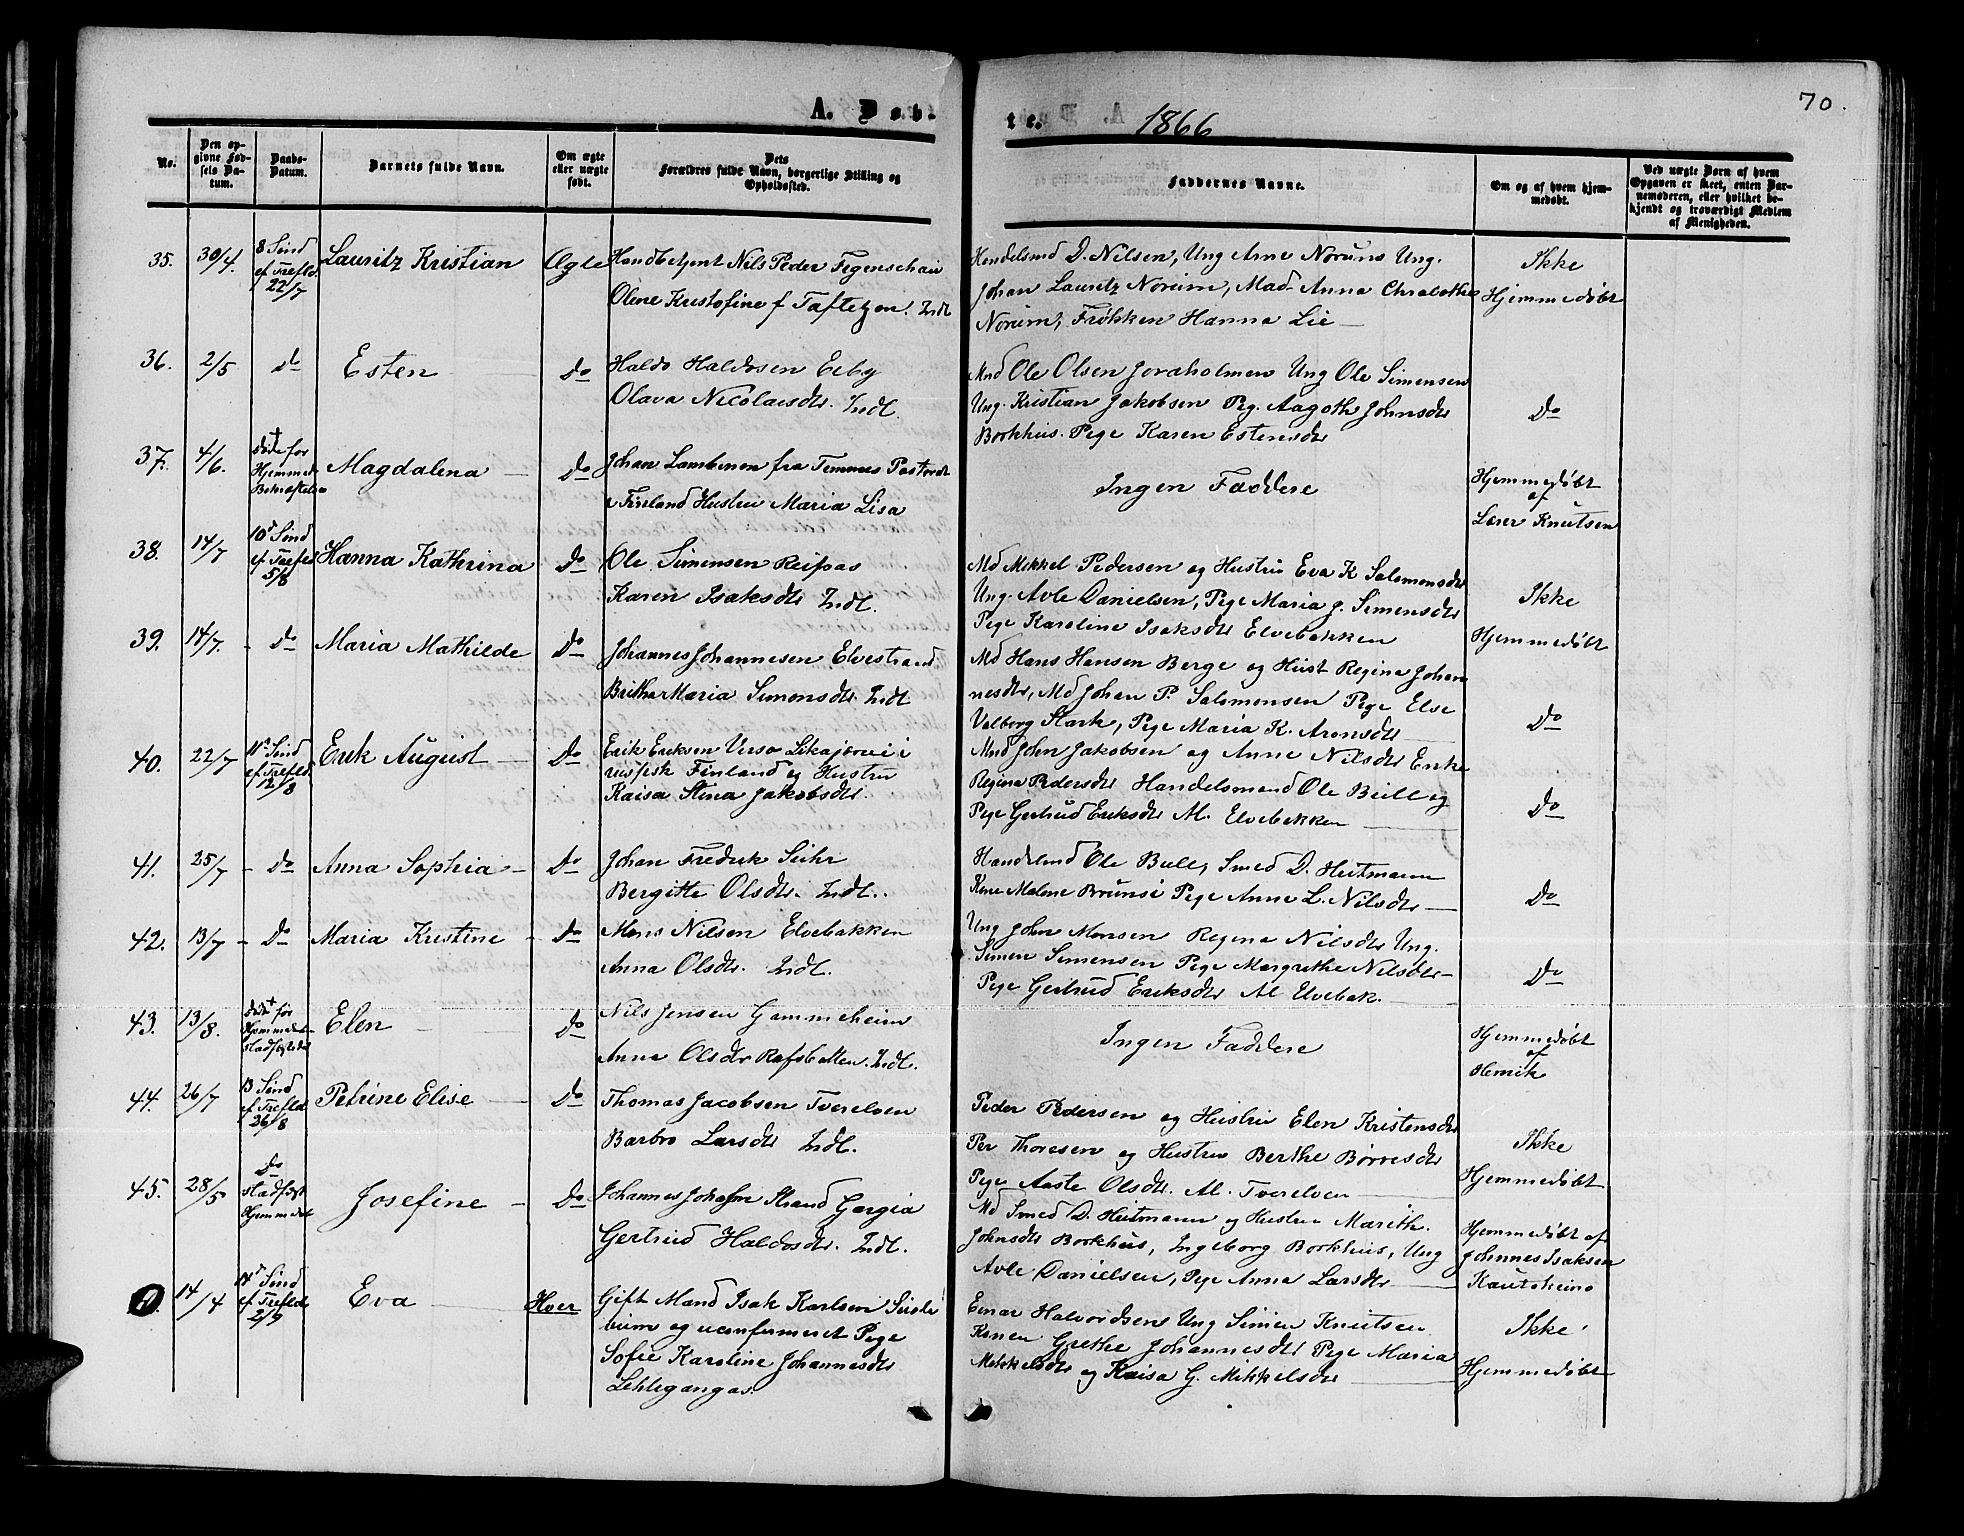 70.
A. Døbte. 1866
No.
Den opgivne Fødsels Datum.
Daabs-Datum.
Barnets fulde Navn.
Om ægte eller uægte født.
Dets Forældres fulde Navn, borgerlige Stilling og Opholdssted.
Faddernes Navne.
Om og af hvem hjemmedøbt.
Ved uægte Børn af hvem Opgaven er skeet, enten Barnemoderen, eller hvilket bekjendt og troværdigt Medlem af Menigheden.
35. 30/4. 8 Sønd ef Trefld. 22/7 Lauritz Kristian Ægte
Handbetjent Nils Peder
Olene Kristofine f Taftezon. Indl
Handelsmd D. Nilsen, Ung Arne Norum Ung.
Johan Lauritz Norum, Mad Anna
Norum, Frøkken Hanna Lie
Ikke
Hjemmedøbt
36. 2/5 do Esten Do
Haldo Haldosen Eeby
Olava Nicolaisdtr. Indl.
Mnd Ole Olsen Joraholmen Ung Ole Simensen
Ung. Kristian Jakobsen Pig. Aagoth Johnsdtr
Borkhus. Pige Karen Estensdtr
Do
37. 4/6. Døde før Hjemmed. Bekræftelse Magdalena Do
Johan Lambenen fra Temmes Pastorat
i Finland Hustru Maria Lisa
Ingen Faddere
Hjemmedøbt
af
Lærer Knutsen
38. 14/7 10d Sønd ef. Trefld 5/8 Hanna Kathrina Do
Ole Simensen Reifsas
Karen Isaksdtr Indl.
Md Mikkel Pedersen og Hustru Eva K Salomonsdtr
Ung. Avle Danielsen, Pige Maria J. Simensdtr
Pige Karoline Isaksdtr Elvebakken
Ikke
Hjemmedøbt
39. 14/7. Do Maria Mathilde Do
Johannes Johannesen Elvestrand
Britha Maria Simonsdtr. Indl
Md Hans Hansen Berge og Hust Regina Johan
nesdtr, Md Johan P. Salomonsen Pige Else
Valborg Stark, Pige Maria K. Aronsdtr
Do
40. 22/7 11d Sønd ef Trefld. 12/8 Erik August Do
Erik Eriksen Verso Likajærvi i
rusfisk Finland og Hustru
Kaisa Stina Jakobsdtr.
Mnd John Jakobsen og Anne Nilsdtr Enke
Regina Pedersdtr Handelsmand Ole Bull og
Pige Gertrud Eriksdtr Al. Elvebakken
Do
41. 25/7 Do Anna Sophia Do
Johan Frederik Suhr
Bergitte Olsdtr. Indl.
Handelmd Ole Bull, Smed D. Heitmann
Kone Malene Brunsi Pige Anne L. Nilsdtr
Do
42. 13/7 Do Maria Kristine Do
Mons Nilsen Elvebakken
Anna Olsdtr. Indl.
Ung John Monsen Regina Nilsdtr Ung.
Simen Simensen Pige Margrethe Nilsdtr
Pige Gertrud Eriksdtr Al Elvebak.
Do
43. 13/8. Døde før Hjemmedøb. stadfæstedes Elen Do
Nils Jensen Gammeheim
Anna Olsdtr Rafsbatten. Indl.
Ingen Faddere
Hjemmedøbt
af
Henrik
44. 26/7 13 Sønd ef Trefld. 26/8 Petrine Elise Do
Thomas Jacobsen Tverelven
Barbro Larsdtr Indl.
Peder Pedersen og Hustru Elen Kristensdtr
Per Thoresen og Hustru Berthe Børresdtr
Pige Aaste Olsdtr. Al. Tverelven
Ikke
Hjemmedøbt
45. 28/5 Do stadfæst Hjemmedøb Josefine Do
Johannes Strand Gargia
Gertrud Haldosdtr. Indl.
Md Smed D. Heitmann og Hustru Marith
Johnsdtr Borkhus, Ingeborg Borkhus, Ung
Avle Danielsen, Pige Anna Larsdtr
Hjemmedøbt af
Johnnes Isaksen
Kautokeino
14/4 14d Sønd ef Trefld 2/9 Eva Hoer
Gift Mand Isak Karlsen
og uconfirmeret Pige
Sofie Karoline Johannesdtr
Lehlegangas.
Einar Halvordsen Ung Simen Knutsen
Konen Grethe Johannesdtr Pige Maria
Mikkelsdtr og Kaisa G. Mikkelsdtr
Ikke
Hjemmedøbt